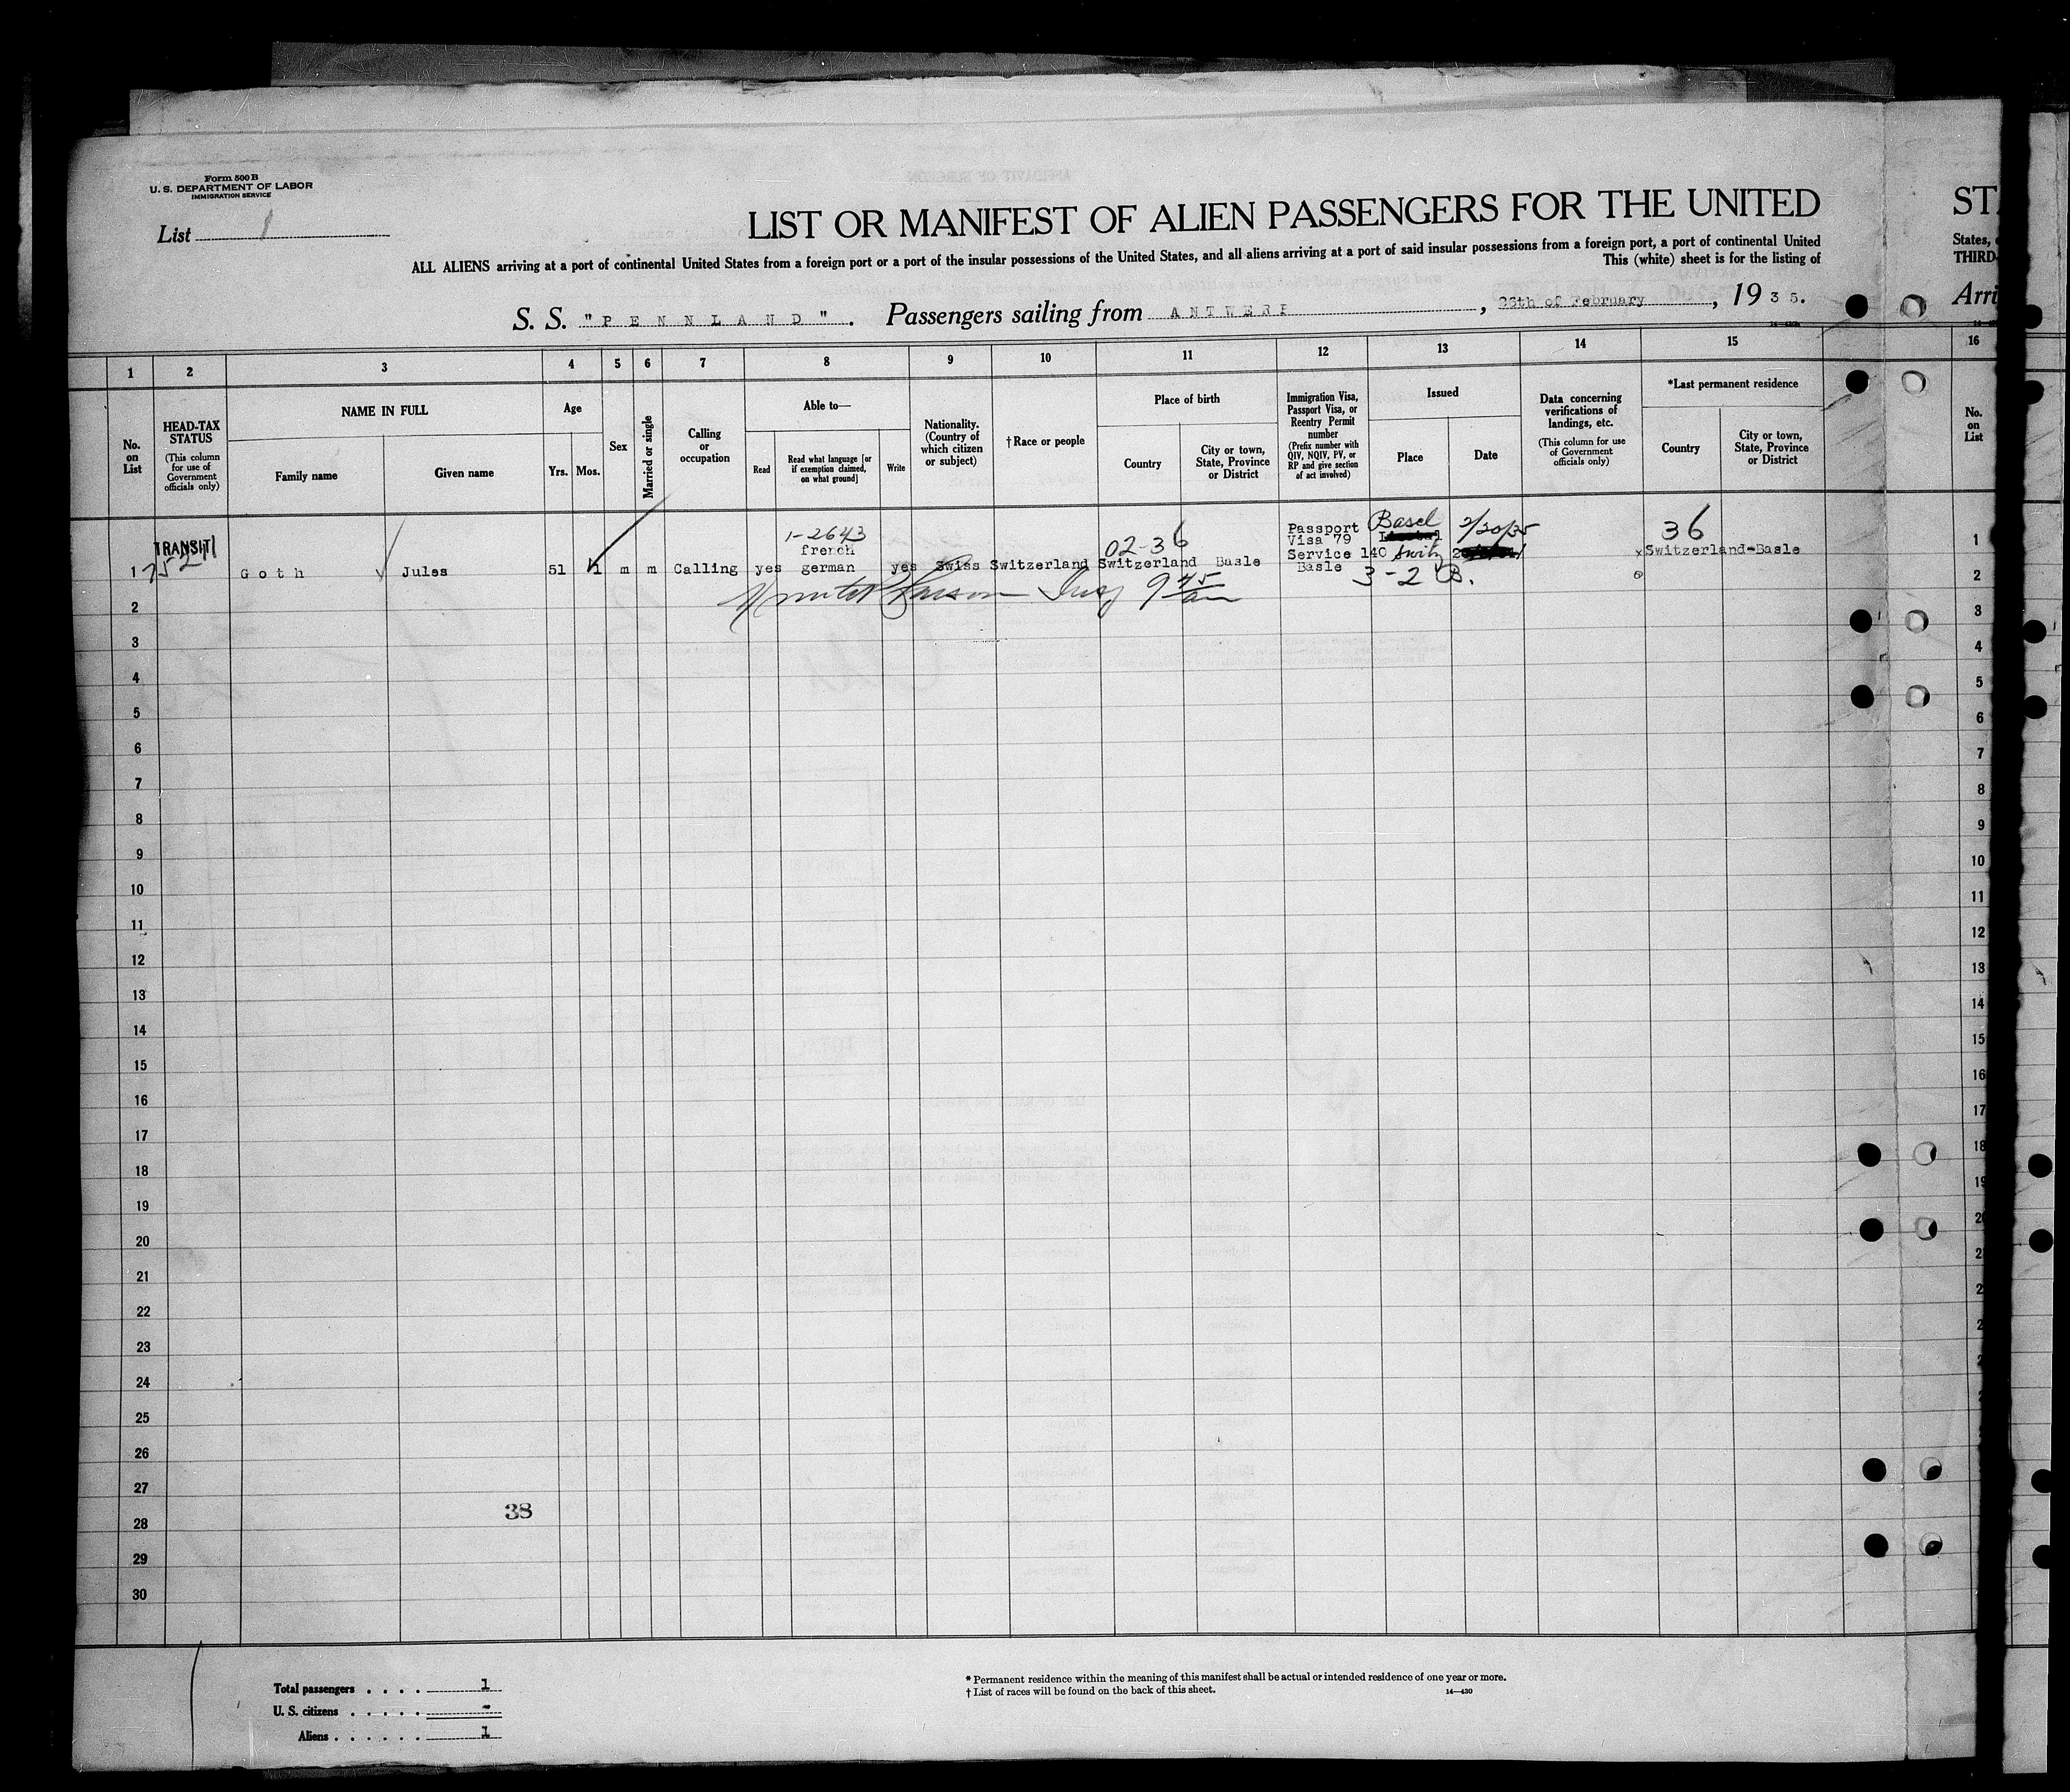 Form 500 B
U. S. DEPARTMENT OF LABOR
IMMIGRATION SERVICE
List 1
LIST OR MANIFEST OF ALIEN PASSENGERS FOR THE UNITED
ALL ALIENS arriving at a port of continental United States from a foreign port or a port of the insular possessions of the United States, and all aliens arriving at a port of said insular possessions from a foreign port, a port of continental United
This (white) sheet is for the listing of
S. S. "PENNLAND". Passengers sailing from ANTWERP, 26th of February, 1935.
STA
States,
THIRD-
Arri
1 2 3 4 5 6 7 8 9 10 11 12 13 14 15 16
No. on List
HEAD-TAX STATUS
(This column for use of Government officials only)
NAME IN FULL
Family name
Given name
Age
Yrs.
Mos.
Sex
Married or single
Calling or occupation
Able to—
Read
Read what language [or if exemption claimed, on what ground]
Write
Nationality. (Country of which citizen or subject)
†Race or people
Place of birth
Country
City or town, State, Province or District
Immigration Visa, Passport Visa, or Reentry Permit number
(Prefix number with QIV, NQIV, PV, or RP and give section of act involved)
Issued
Place
Date
Data concerning verifications of landings, etc.
(This column for use of Government officials only)
*Last permanent residence
Country
City or town, State, Province or District
No. on List
TRANSIT
1-2643
02-36
Passport Basel 2/20/35
36
french
Visa 79
Service 140 Switz
x Switzerland-Basle
1 Goth Jules 51 1 m m Calling yes german yes Swiss Switzerland Switzerland Basle Basle 3-2 B.
2
3
4
5
6
7
8
9
10
11
12
13
14
15
16
17
18
19
20
21
22
23
24
25
26
27
38
28
29
30
1
2
3
4
5
6
7
8
9
10
11
12
13
14
15
16
17
18
Total passengers . . . . 1
U. S. citizens . . . . . -
Aliens . . . . . . 1
* Permanent residence within the meaning of this manifest shall be actual or intended residence of one year or more.
† List of races will be found on the back of this sheet.
14—430